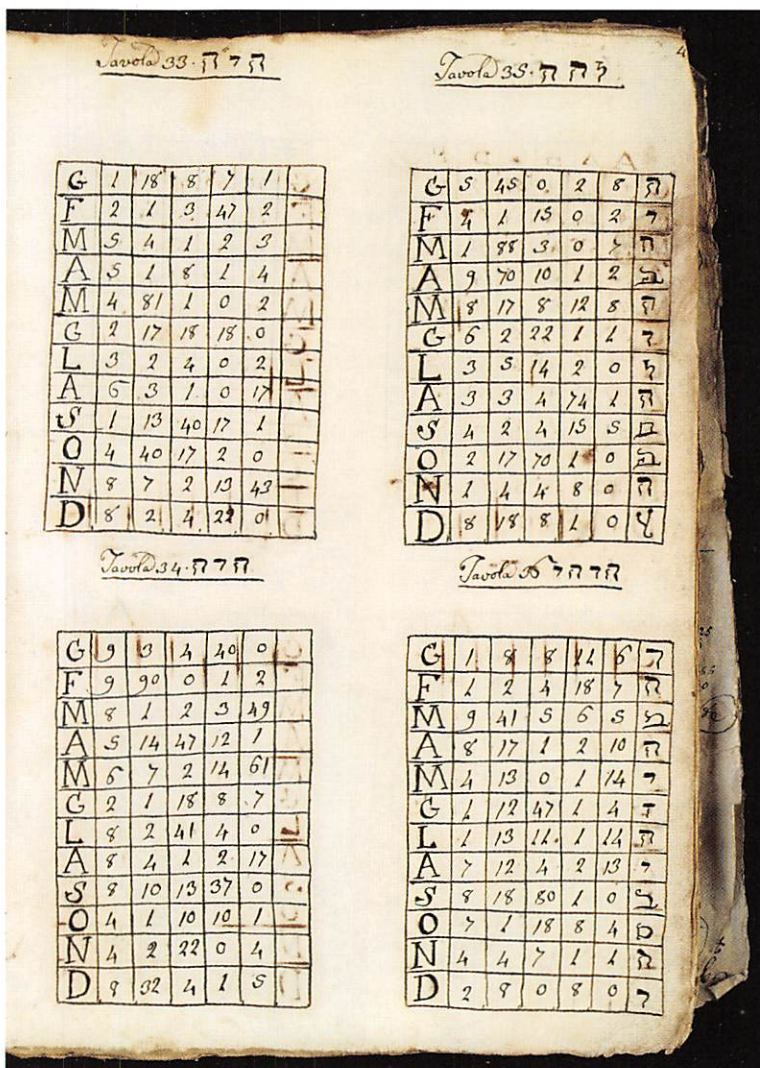 Tavola 33. הרה
G 1 18 8 7 1
F 2 1 3 47 2
M 5 4 1 2 3
A 5 1 8 1 4
M 4 81 1 0 2
G 2 17 18 18 0
L 3 2 4 0 2
A 6 3 1 0 17
S 1 13 40 17 1
O 4 40 17 2 0
N 8 7 2 13 43
D 8 2 4 22 0
Tavola 34. הרה
G 9 3 4 40 0
F 9 90 0 1 2
M 8 1 2 3 49
A 5 14 47 12 1
M 6 7 2 14 61
G 2 1 18 8 7
L 8 2 41 4 0
A 8 4 1 2 17
S 8 10 13 37 0
O 4 1 10 10 1
N 4 2 22 0 4
D 8 32 4 1 5
4
Tavola 35.
G 5 45 0 2 8 ה
F 4 1 15 0 2 ר
M 1 88 3 0 7 ה
A 9 70 10 1 2 ב
M 8 17 8 12 8 ה
G 6 2 22 1 1 ר
L 3 5 14 2 0
A 3 3 4 74 1 ה
S 4 2 4 15 5
O 2 17 70 1 0 ב
N 1 4 4 8 0 ה
D 8 18 8 1 0
Tavola 36
G 1 8 8 11 6 ה
F 1 2 4 18 7 ה
M 9 41 5 6 5
A 8 17 1 2 10 ה
M 4 13 0 1 14 ר
G 1 12 47 1 4
L 1 13 11 1 14 ה
A 7 12 4 2 13 ר
S 8 18 80 1 0 ב
O 7 1 18 8 4
N 4 4 7 1 1 ה
D 2 8 0 8 0 ר